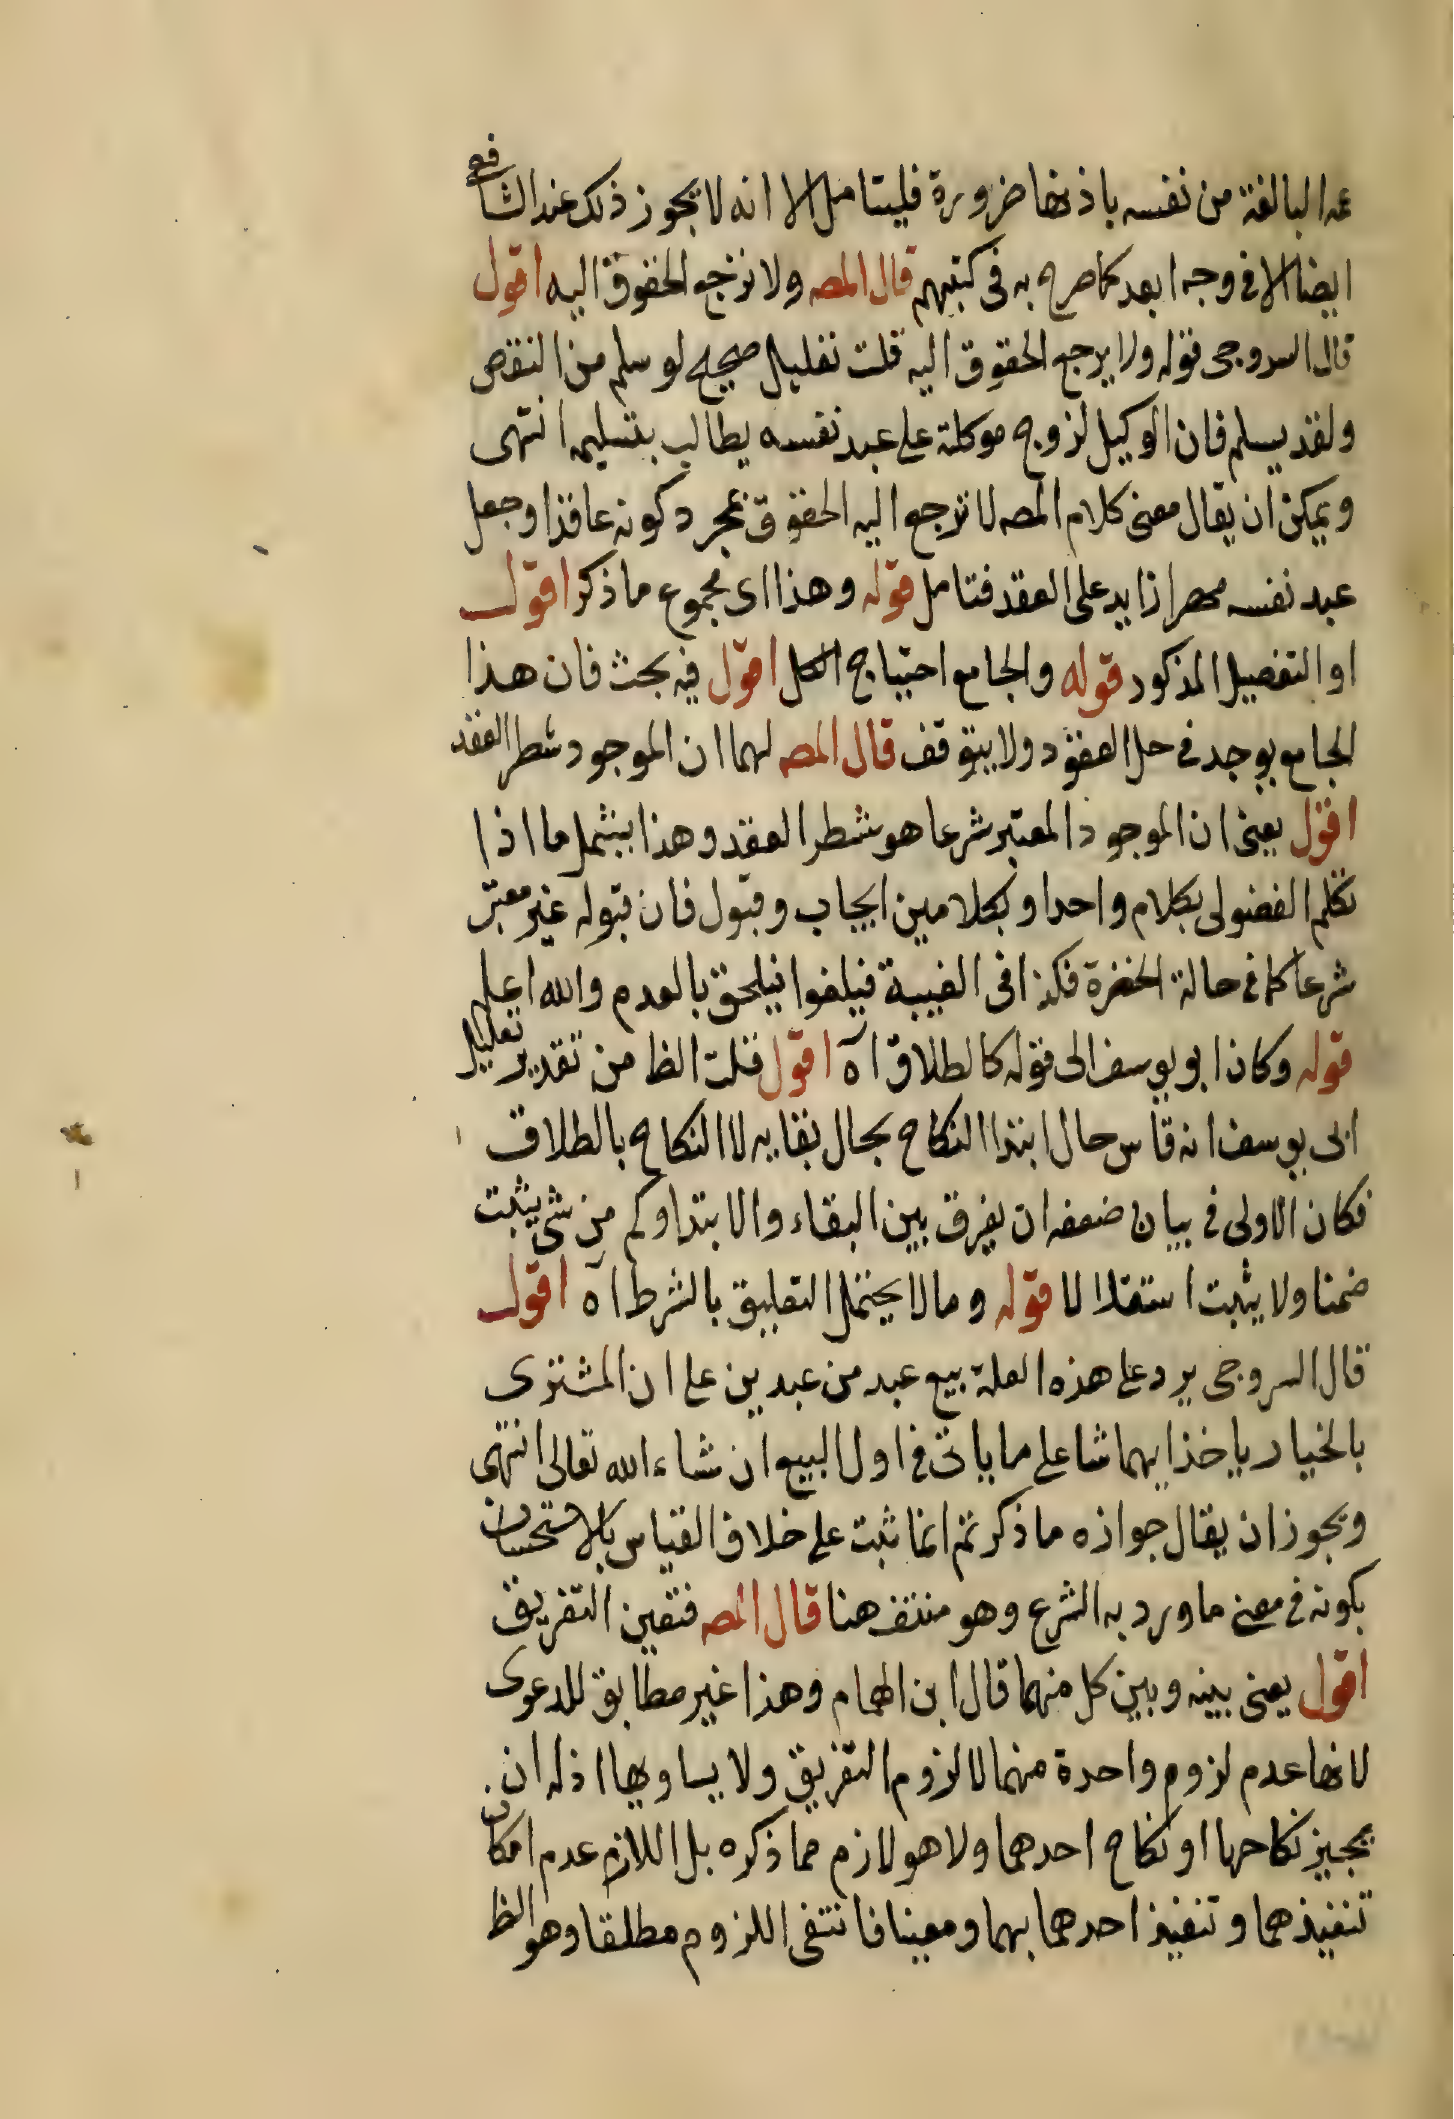 عمه البالغة من نفسه باذنها ضرورة فليتامل الا انه لا يجوز ذلك عند الشافعى
ايضا الا فى وجه ابعد كما صرح به فى كتبهم قال المصه ولا ترجع الحقوق اليه اقول
قال السروجى قوله ولا يرجع الحقوق اليه قلت تعليل صحيح لو سلم من النقض
ولقد يسلم فان الوكيل لزوج موكلته على عبد نفسه يطالب بتسليمه انتهى
ويمكن ان يقال معنى كلام المصه لا ترجع اليه الحقوق بمجرد كونه عاقدا وجعل
عبد نفسه مهرا زايد على العقد فتامل قوله وهذا اى مجموع ما ذكر اقول
او التفصيل المذكور قوله والجامع احتياج الكل اقول فيه بحث فان هذا
الجامع يوجد فى حل العقود ولا يتوقف قال المصه لهما ان الموجود شطر العقد
اقول يعنى ان الموجود المعتبر شرعا هو شطر العقد وهذا يشمل ما اذا
تكلم الفضولى بكلام واحد او بكلامين ايجاب وقبول فان قبوله غير معتبر
شرعا كما فى حالة الحضرة فكذا فى الغيبة فيلغوا فيلحق بالعدم والله اعلم
قوله وكان ابو يوسف الى قوله كالطلاق اه اقول قلت الظ من تقدير تعليل
ابى يوسف انه قاس حال ابتدا النكاح بحال بقايه لا النكاح بالطلاق
فكان الاولى فى بيان ضعفه ان يفرق بين البقاء والابتدا وكم من شى يثبت
ضمنا ولا يثبت استقلالا قوله وما لا يحتمل التعليق بالشرط اه اقول
قال السروجى يرد على هذه العلة بيع عبد من عبدين على ان المشترى
بالخيار ياخذ ايهما شا على ما ياتى فى اول البيع ان شاء الله تعالى انتهى
ويجوز ان يقال جوازه ما ذكر ثم انما ثبت على خلاف القياس بالاستحسان
بكونه فى معنى ما ورد به الشرع وهو منتف هنا قال المصه فتعين التفريق
اقول يعنى بينه وبين كل منهما قال ابن الهمام وهذا غير مطابق للدعوى
لانها عدم لزوم واحدة منهما لا لزوم التفريق ولا يساويها اذ له ان
يجيز نكاحها او نكاح احدهما ولا هو لازم مما ذكره بل اللازم عدم امكان
تنفيذهما وتنفيذ احدهما بهما ومعينا فانتفى اللزوم مطلقا وهو الظ